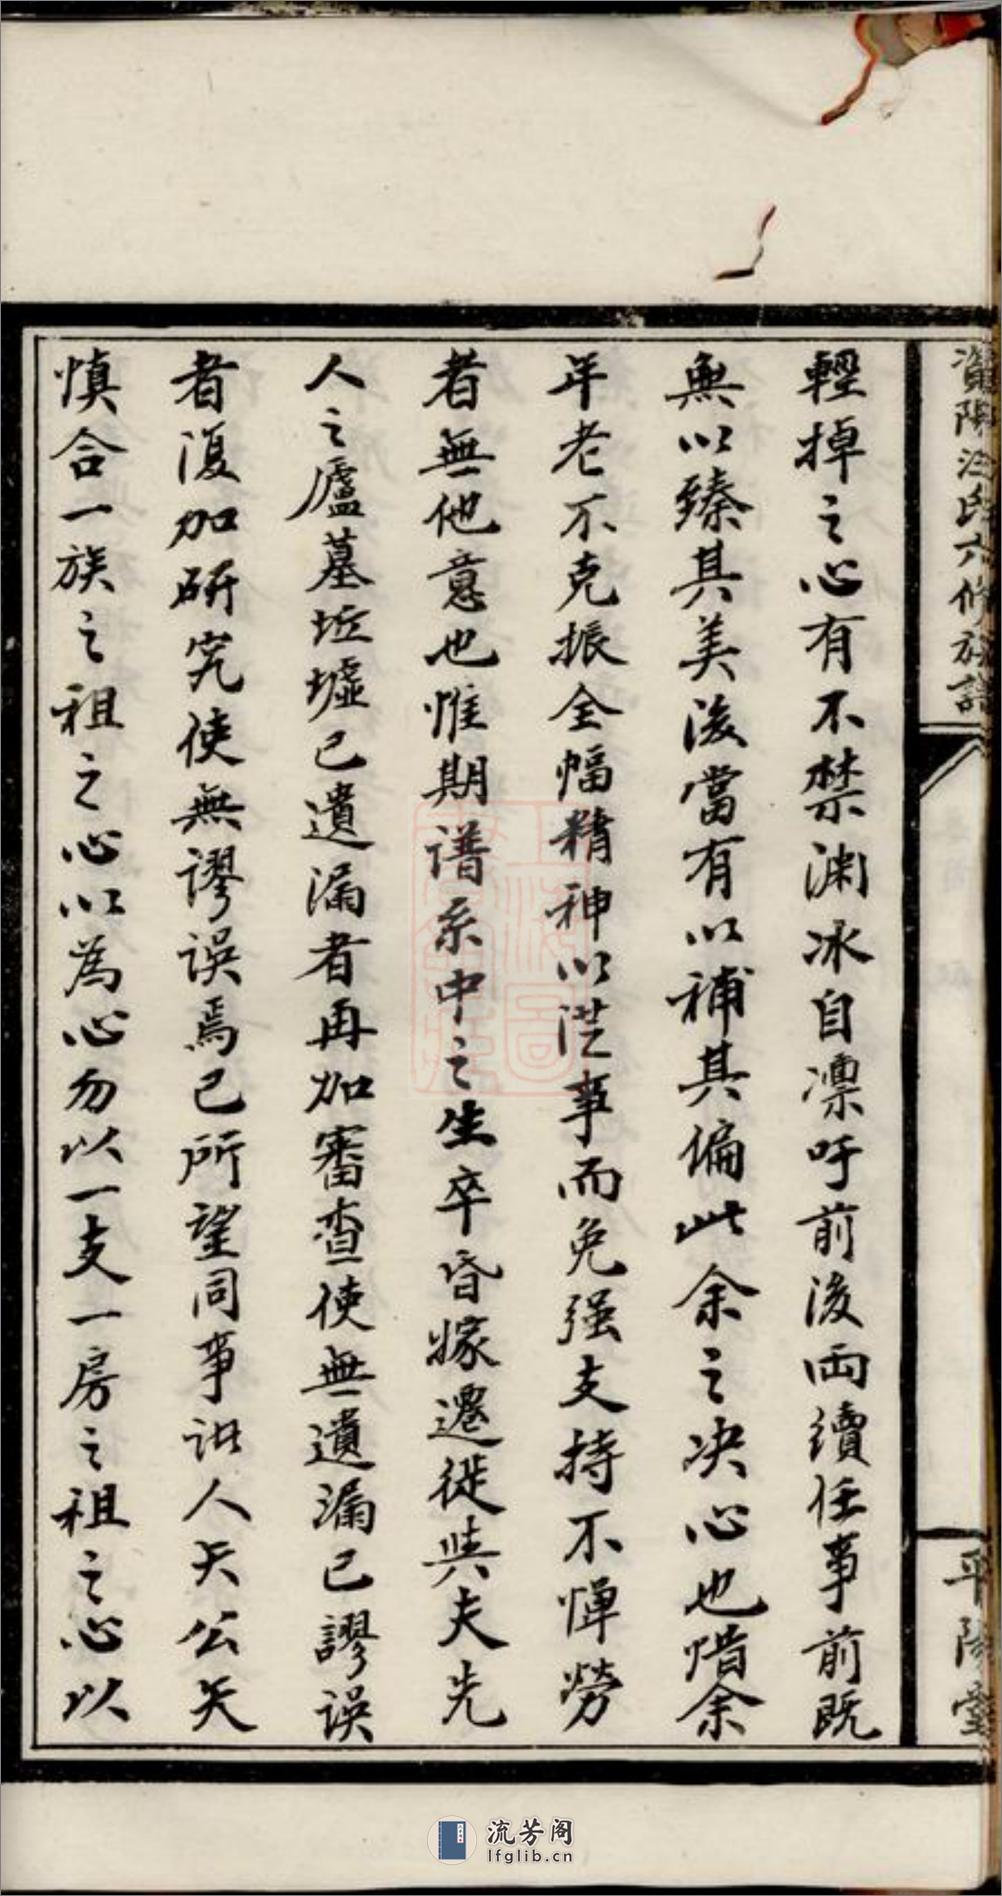 資陽汪氏六修族譜
平陽堂
輕掉之心有不禁淵冰自凜吁前後兩續任事前既
無以臻其美後當有以補其偏此余之决心也惜余
年老不克振全幅精神以涖事而免强支持不憚勞
者無他意也惟期谱系中之生卒昏嫁遷徙與夫先
人之廬墓坵墟已遺漏者再加審查使無遺漏已謬误
者復加研究使無謬误焉已所望同事訨人矢公矢
慎合一族之祖之心以為心勿以一支一房之祖之心以
流芳阁
lfglib.cn